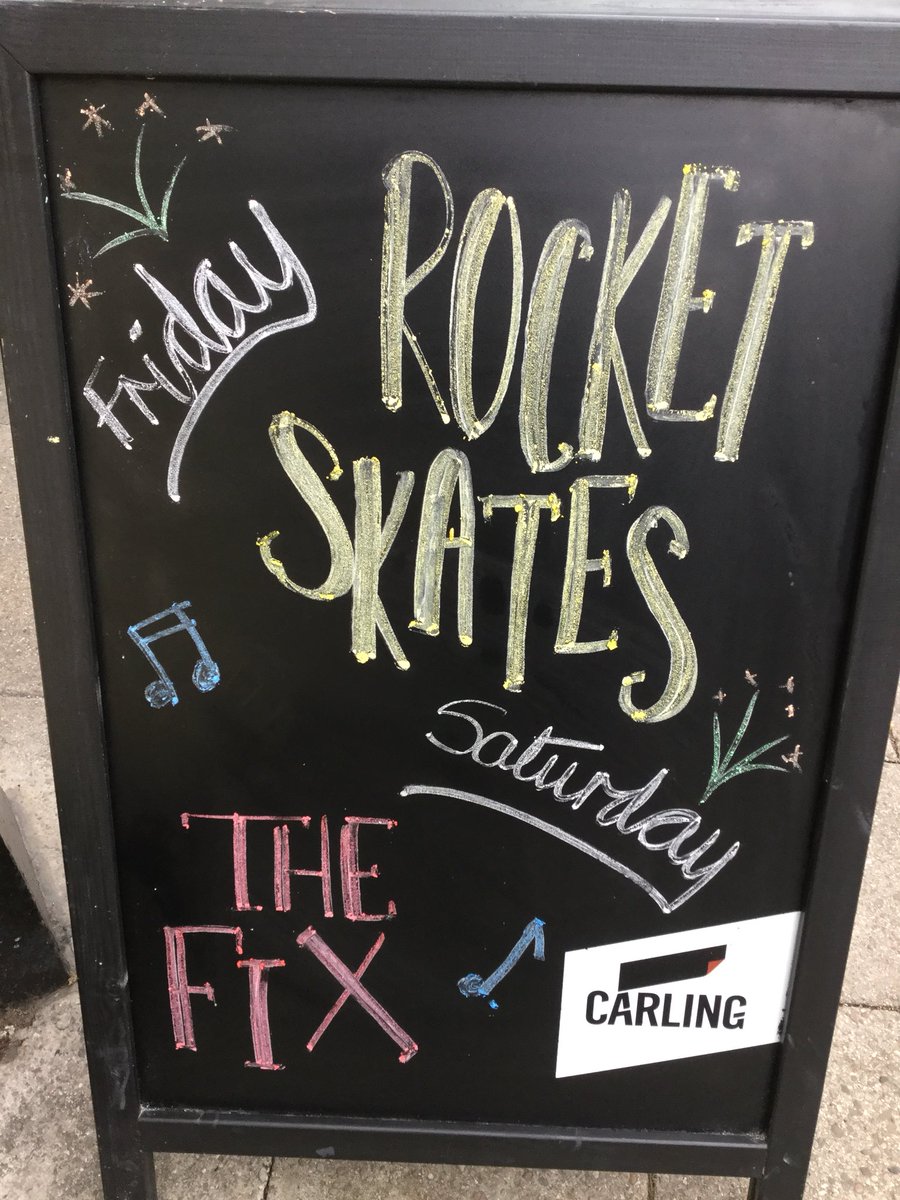 Friday
ROCKET
SKATES
Saturday
THE
FIX
CARLING